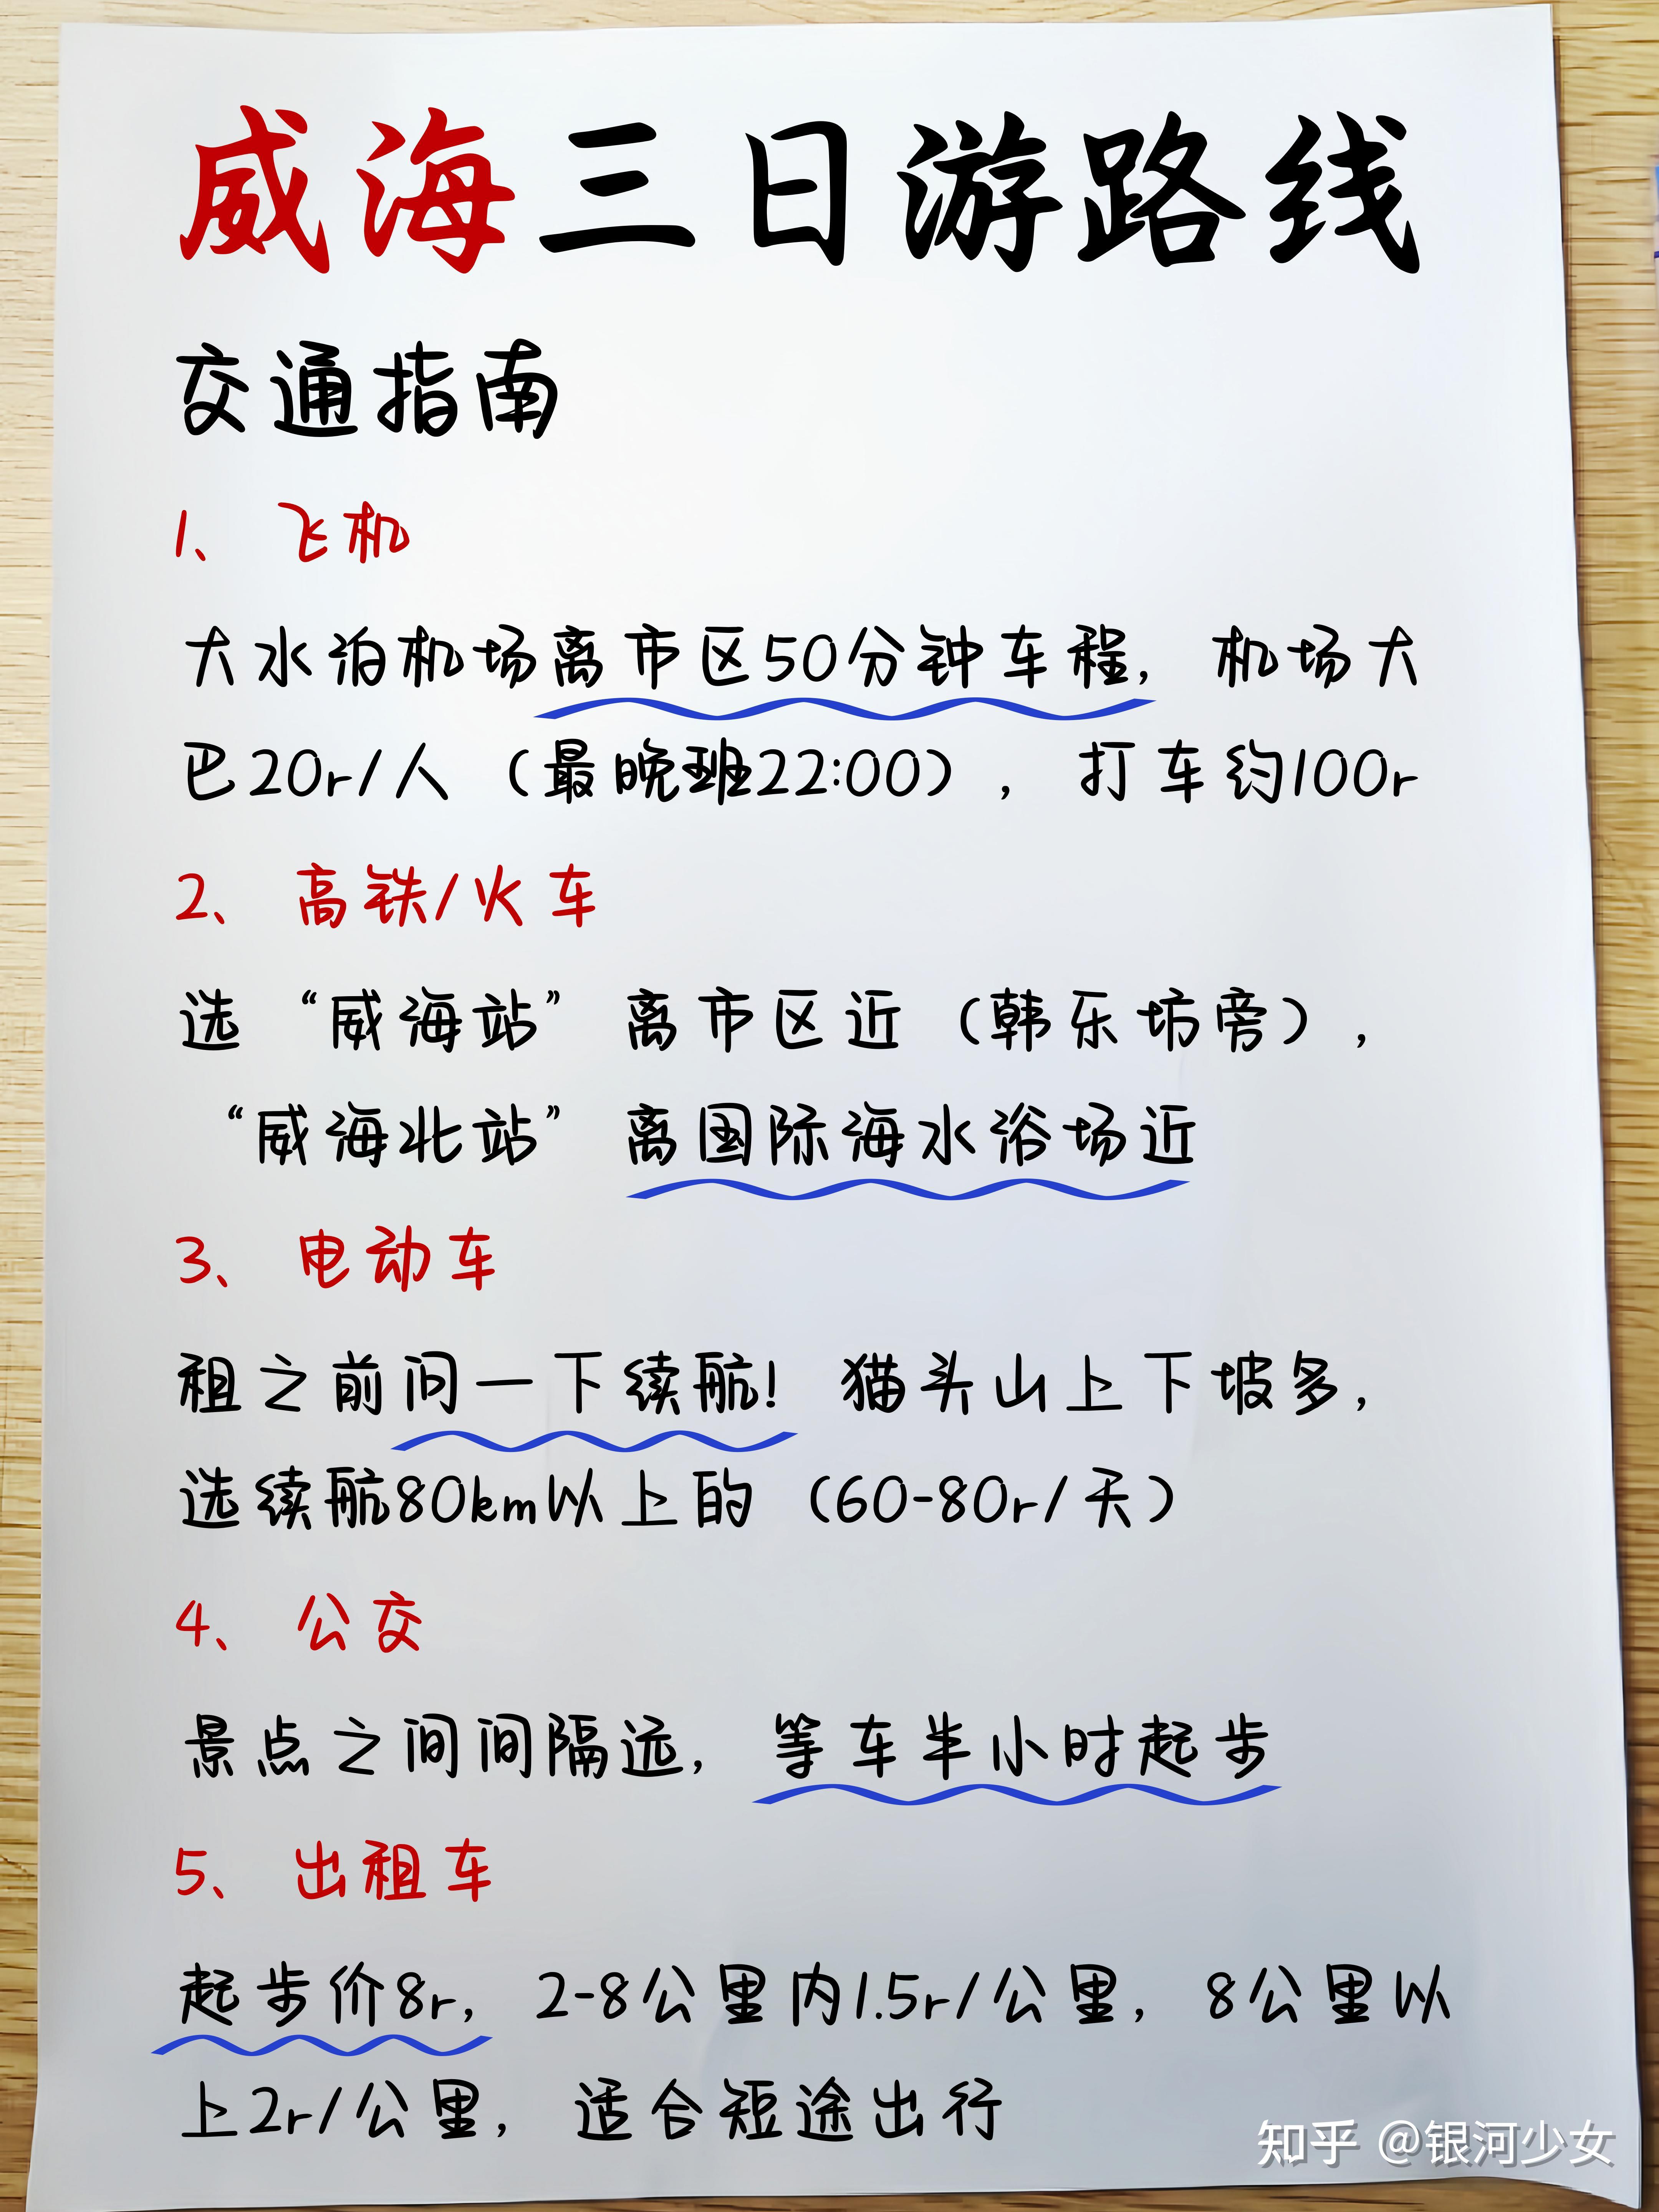 威海三日游路线
交通指南
1、 飞机
大水泊机场离市区50分钟车程, 机场大
巴20r/人（最晚班22:00）, 打车约100r
2、 高铁/火车
选“威海站”离市区近（韩乐坊旁）,
“威海北站”离国际海水浴场近
3、 电动车
租之前问一下续航! 猫头山上下坡多,
选续航80km以上的（60-80r/天）
4、 公交
景点之间间隔远, 等车半小时起步
5、 出租车
起步价8r, 2-8公里内1.5r/公里, 8公里以
上2r/公里, 适合短途出行
知乎 @银河少女